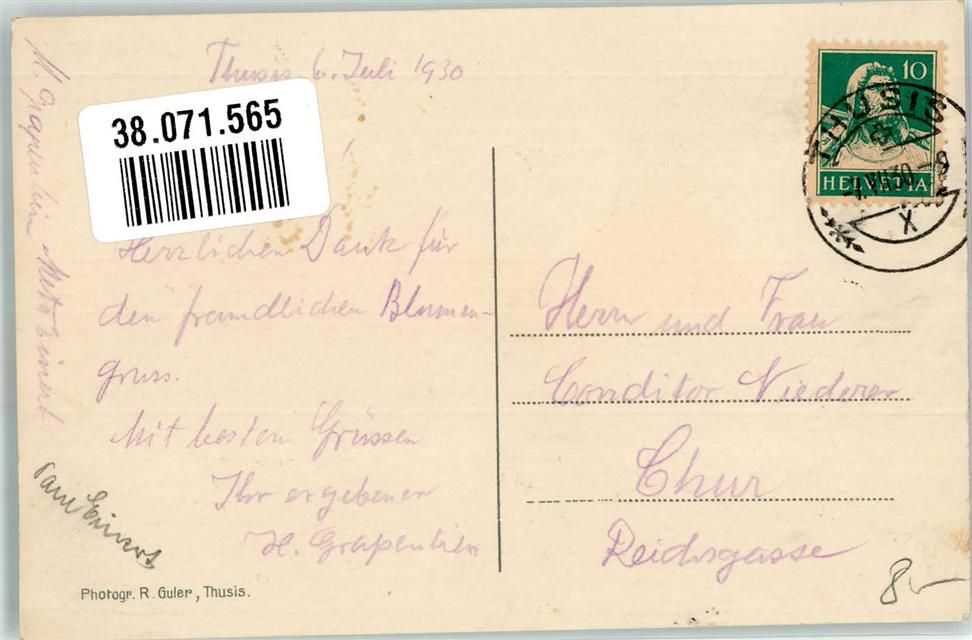 Thusis 6. Juli 1930
38.071.565
Herzlichen Dank für
den freundlichen Blumen-
gruss.
Mit besten Grüssen
Ihr ergebener
H. Grapentien
M. Grapentien
Photogr. R. Guler, Thusis.
10
HELVETIA
THUSIS
VII.30
X
Herrn und Frau
Conditor Niederer
Chur
Reichsgasse
8.-